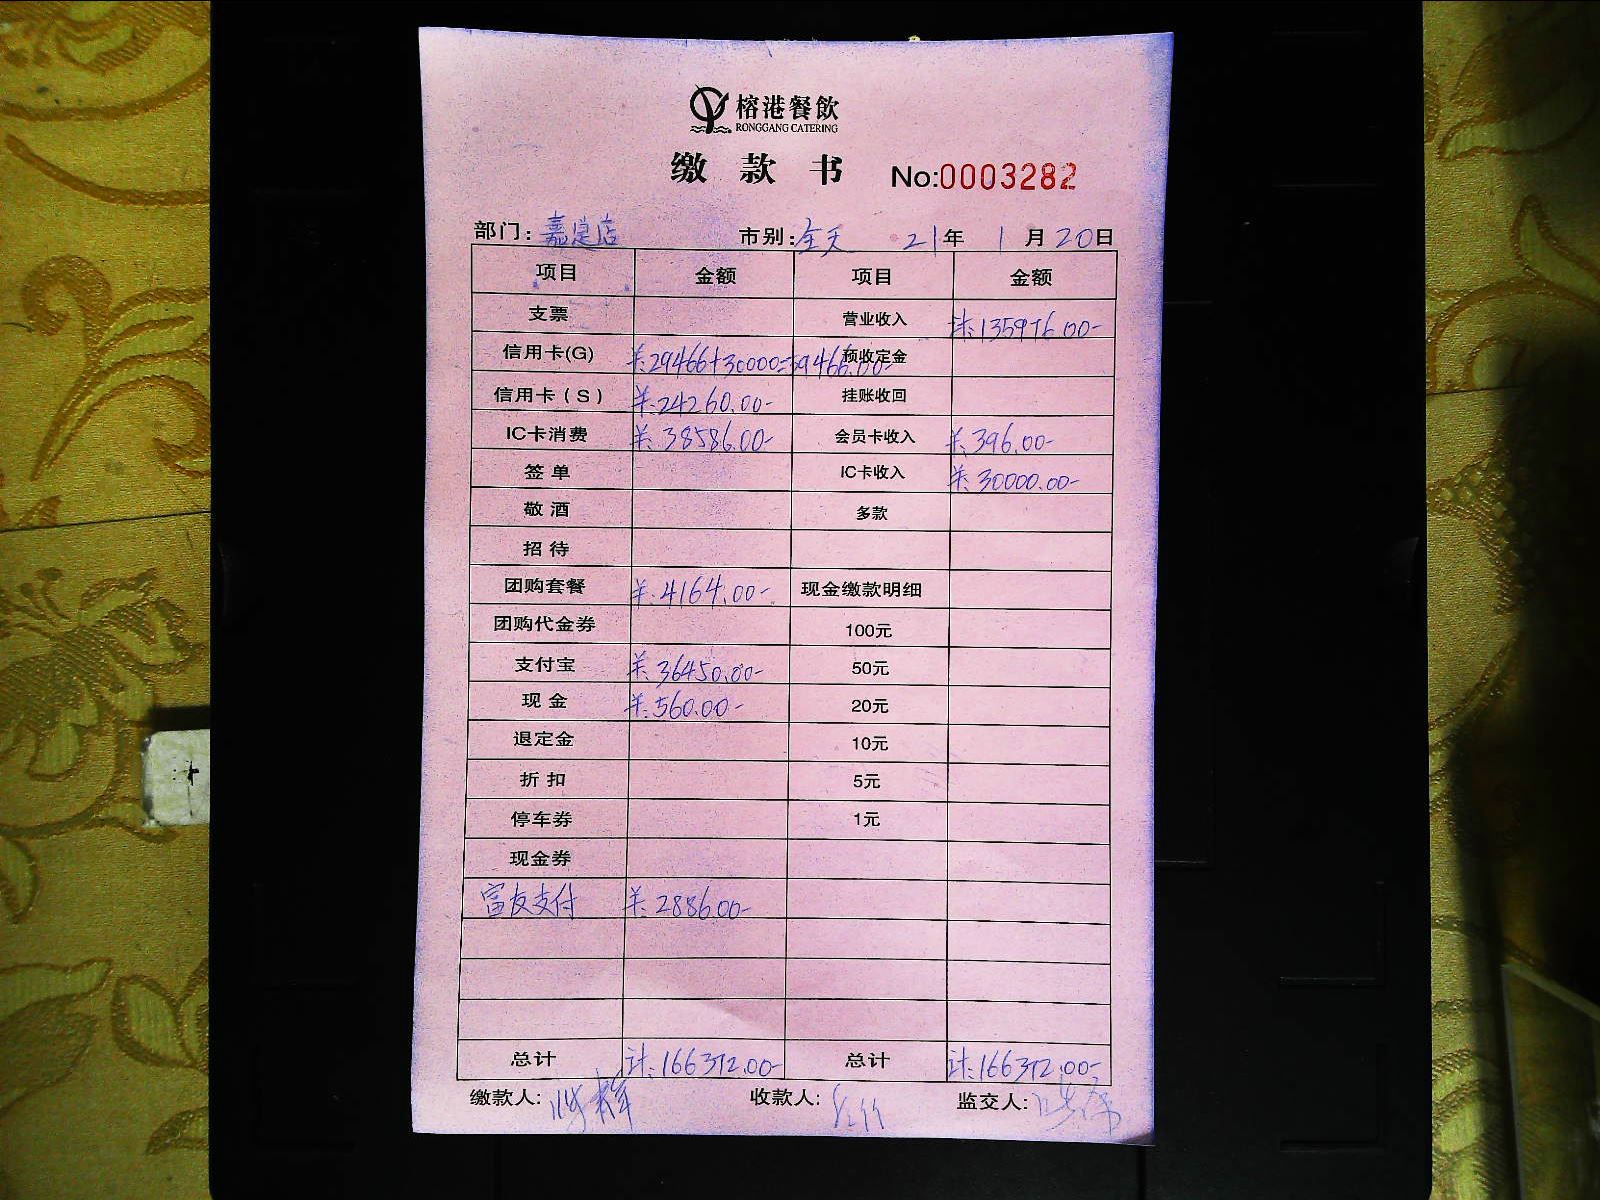 榕港餐飲
RONGGANG CATERING
缴款书 No:0003282
部门: 嘉定店 市别: 全天 21年 1月20日
项目 金额 项目 金额
支票 营业收入 计:135976.00-
信用卡(G) ¥:29466+30000=59466.00- 预收定金
信用卡(S) ¥:24260.00- 挂账收回
IC卡消费 ¥:38586.00- 会员卡收入 ¥:396.00-
签单 IC卡收入 ¥:30000.00-
敬酒 多款
招待
团购套餐 ¥:4164.00- 现金缴款明细
团购代金券 100元
支付宝 ¥:36450.00- 50元
现金 ¥:560.00- 20元
退定金 10元
折扣 5元
停车券 1元
现金券
富友支付 ¥:2886.00-
总计 计:166372.00- 总计 计:166372.00-
缴款人: 收款人: 监交人: